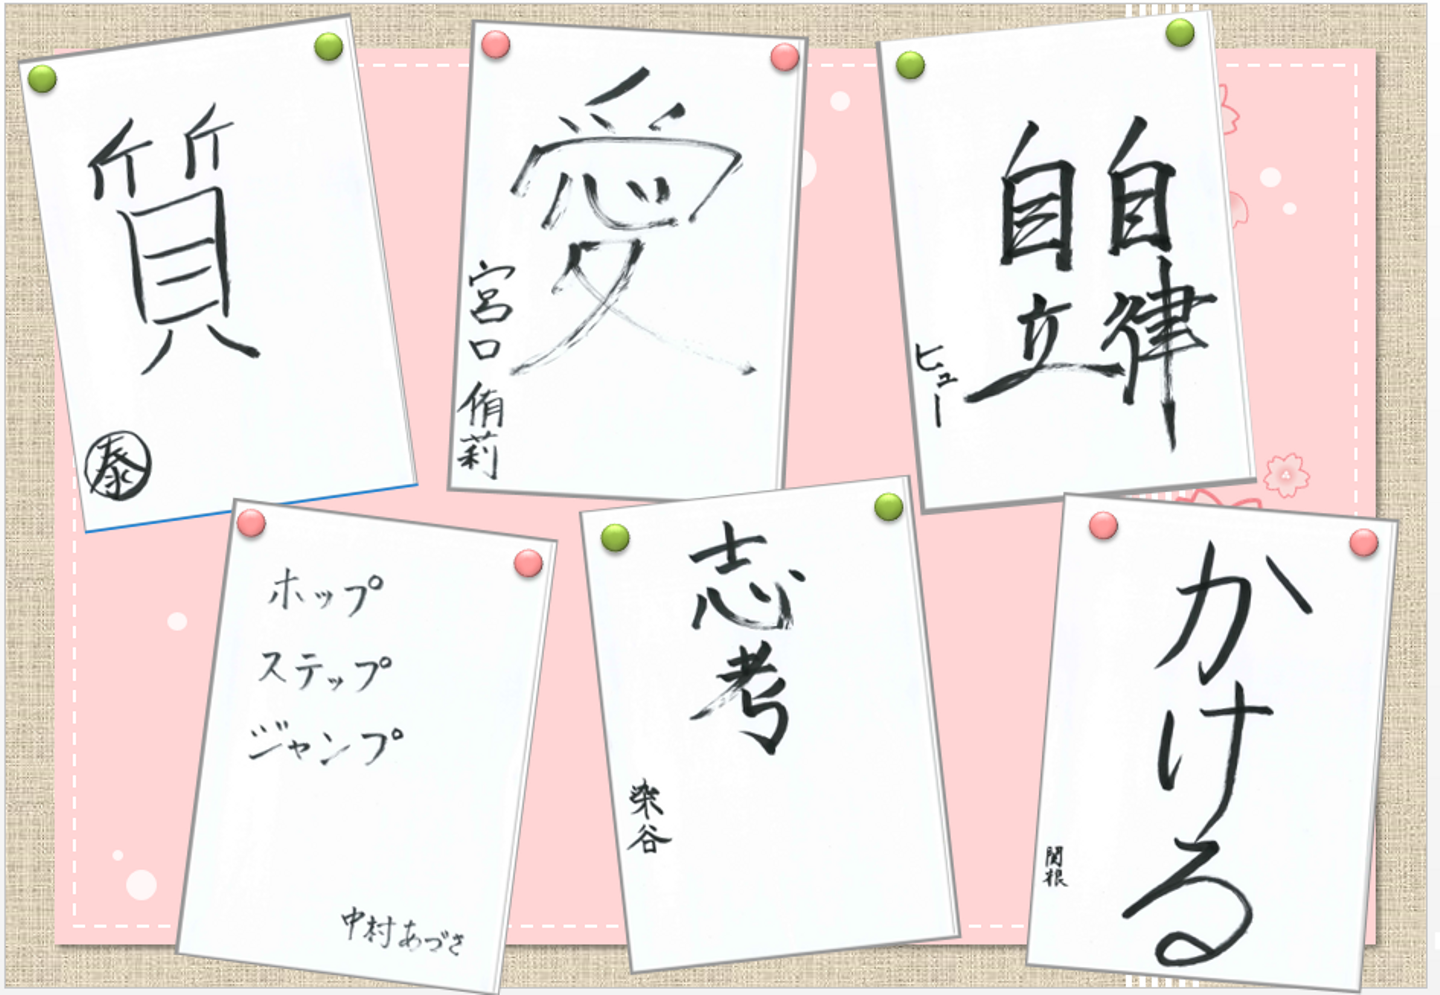 質
泰
愛
宮口 侑莉
自律
自立
ヒュー
ホップ
ステップ
ジャンプ
中村あづさ
志考
染谷
かける
関根